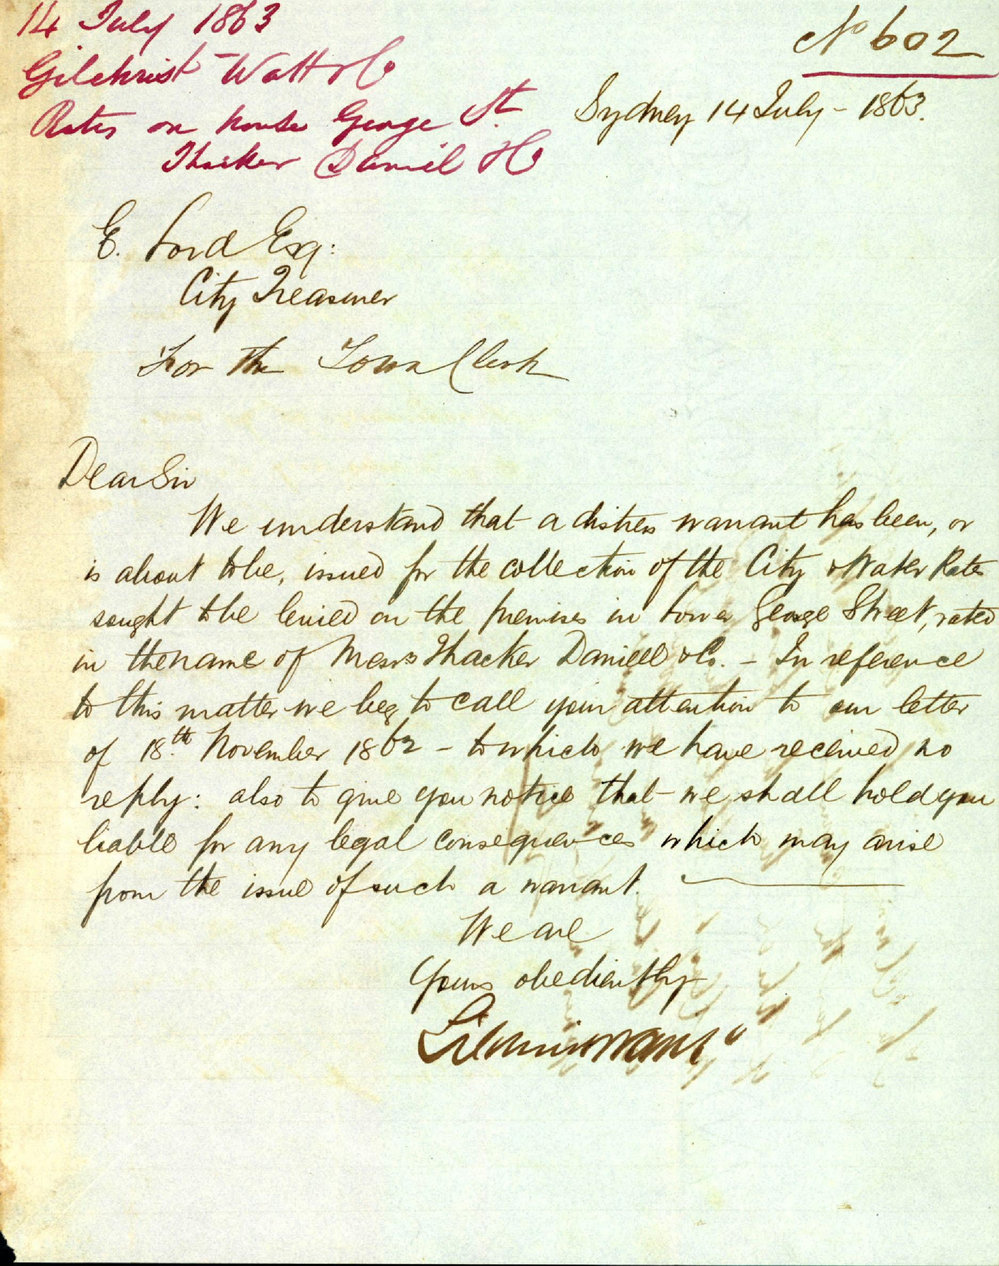 14 July 1863
Gilchrist Watt & Co
Rates on house George St
Thacker Daniell & Co
No 602
Sydney 14 July - 1863.
E. Lord Esq:
City Treasurer
For the Town Clerk
Dear Sir
We understand that a distress warrant has been, or
is about to be, issued for the collection of the City & Water Rates
sought to be levied on the premises in Lower George Street, rated
in the name of Messrs Thacker Daniell & Co. - In reference
to this matter we beg to call your attention to our letter
of 18th November 1862 - to which we have received no
reply: also to give you notice that - we shall hold you
liable for any legal consequences which may arise
from the issue of such a warrant.
We are
Yours obediently
Gilchrist Watt & Co